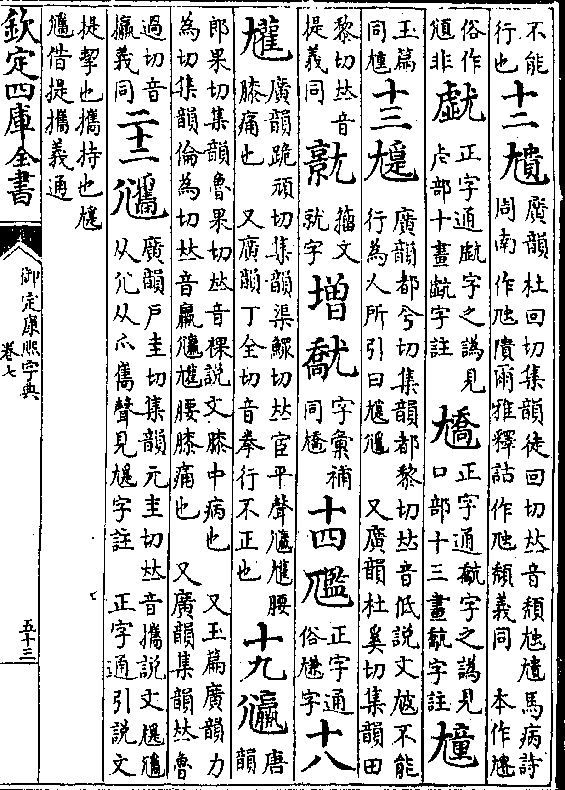 不能
行也
十二
廣韻杜回切集韻徒回切𠀤音頹虺尵馬病詩
周南作虺隤爾雅釋詁作虺頽義同 本作尵
俗作
非
正字通字之譌見
虍部十畫字註
正字通字之譌見
口部十三畫字註
玉篇
同尵
十三
尶
廣韻都兮切集韻都黎切𠀤音低說文不能
行為人所引曰 又廣韻杜奚切集韻田
黎切𠀤音
提義同
籀文
就字
增
字彙補
同
十四
尷
正字通
俗尲字
十八
廣韻跪頑切集韻渠鰥切𠀤宦平聲腰
膝痛也 又廣韻丁全切音拳行不正也
十九
唐
韻
郎果切集韻魯果切𠀤音裸說文膝中病也 又玉篇廣韻力
為切集韻倫為切𠀤音羸腰膝痛也 又廣韻集韻𠀤魯
過切音
臝義同
二十二
廣韻戶圭切集韻元圭切𠀤音攜說文
从尣从爪雟聲見字註 正字通引說文
提挈也攜持也
借提攜義通
欽定四庫全書
御定康熙字典
卷七
五十三